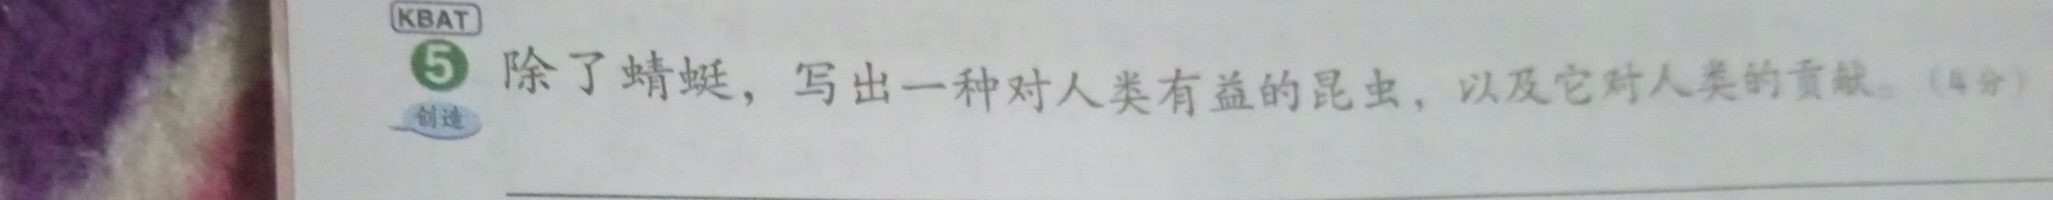 KBAT
5 除了蜻蜓，写出一种对人类有益的昆虫，以及它对人类的贡献。（4分）
创造